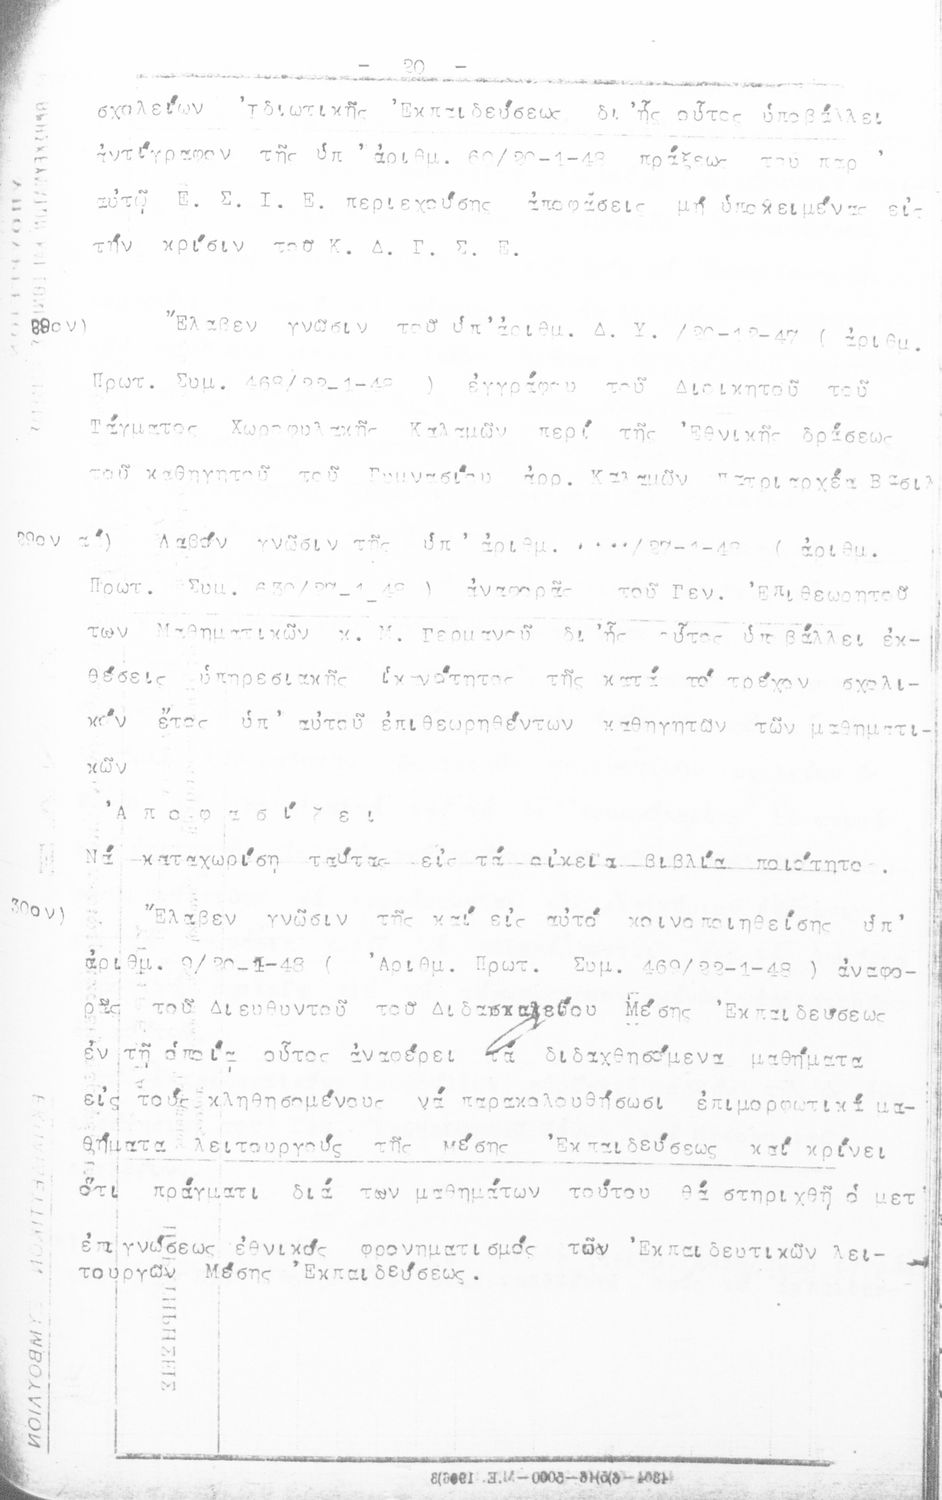 - 20 -
σχολείων Ἰδιωτικῆς Ἐκπαιδεύσεως δι 'ἧς οὗτος ὑποβάλλει
ἀντίγραφον τῆς ὑπ 'ἀριθμ. 60/20-1-48 πράξεως τοῦ παρ '
αὐτῷ Ε. Σ. Ι. Ε. περιεχούσης ἀποφάσεις μή ὑποκειμένας εἰς
τήν κρίσιν τοῦ Κ. Δ. Γ. Σ. Ε.
28ον) Ἔλαβεν γνῶσιν τοῦ ὑπ'ἀριθμ. Δ. Υ. /20-12-47 ( ἀριθμ.
Πρωτ. Συμ. 468/22-1-48 ) ἐγγράφου τοῦ Διοικητοῦ τοῦ
Τάγματος Χωροφυλακῆς Καλαμῶν περί τῆς Ἐθνικῆς δράσεως
τοῦ καθηγητοῦ τοῦ Γυμνασίου ἀρρ. Καλαμῶν Πατριαρχέα Βασιλ
29ον α) Λαβόν γνῶσιν τῆς ὑπ ' ἀριθμ. ..../27-1-48 ( ἀριθμ.
Πρωτ. Συμ. 630/27_1_48 ) ἀναφορᾶς τοῦ Γεν. Ἐπιθεωρητοῦ
των Μαθηματικῶν κ. Μ. Γερμανοῦ δι 'ἧς οὗτος ὑπ βάλλει ἐκ-
θέσεις ὑπηρεσιακῆς ἱκανότητος τῆς κατά τό τρέχον σχολι-
κόν ἔτος ὑπ' αὐτοῦ ἐπιθεωρηθέντων καθηγητῶν τῶν μαθηματι-
κῶν
Ἀ π ο φ α σ ί ζ ε ι
Νά καταχωρίσῃ ταύτας εἰς τά οἰκεῖα βιβλία ποιότητο .
30ον) Ἔλαβεν γνῶσιν τῆς καί εἰς αὐτό κοινοποιηθείσης ὑπ'
ἀριθμ. 9/20_1-48 ( Ἀριθμ. Πρωτ. Συμ. 469/22-1-48 ) ἀναφο-
ρᾶς τοῦ Διευθυντοῦ τοῦ Διδασκαλείου Μέσης Ἐκπαιδεύσεως
ἐν τῇ ὁποίᾳ οὗτος ἀναφέρει τά διδαχθησόμενα μαθήματα
εἰς τούς κληθησομένους νά παρακολουθήσωσι ἐπιμορφωτικά μα-
θήματα λειτουργούς τῆς Μέσης Ἐκπαιδεύσεως καί κρίνει
ὅτι πράγματι διά των μαθημάτων τούτου θά στηριχθῇ ὁ μετ'
ἐπιγνώσεως ἐθνικός φρονηματισμός τῶν Ἐκπαιδευτικῶν λει-
τουργῶν Μέσης Ἐκπαιδεύσεως.